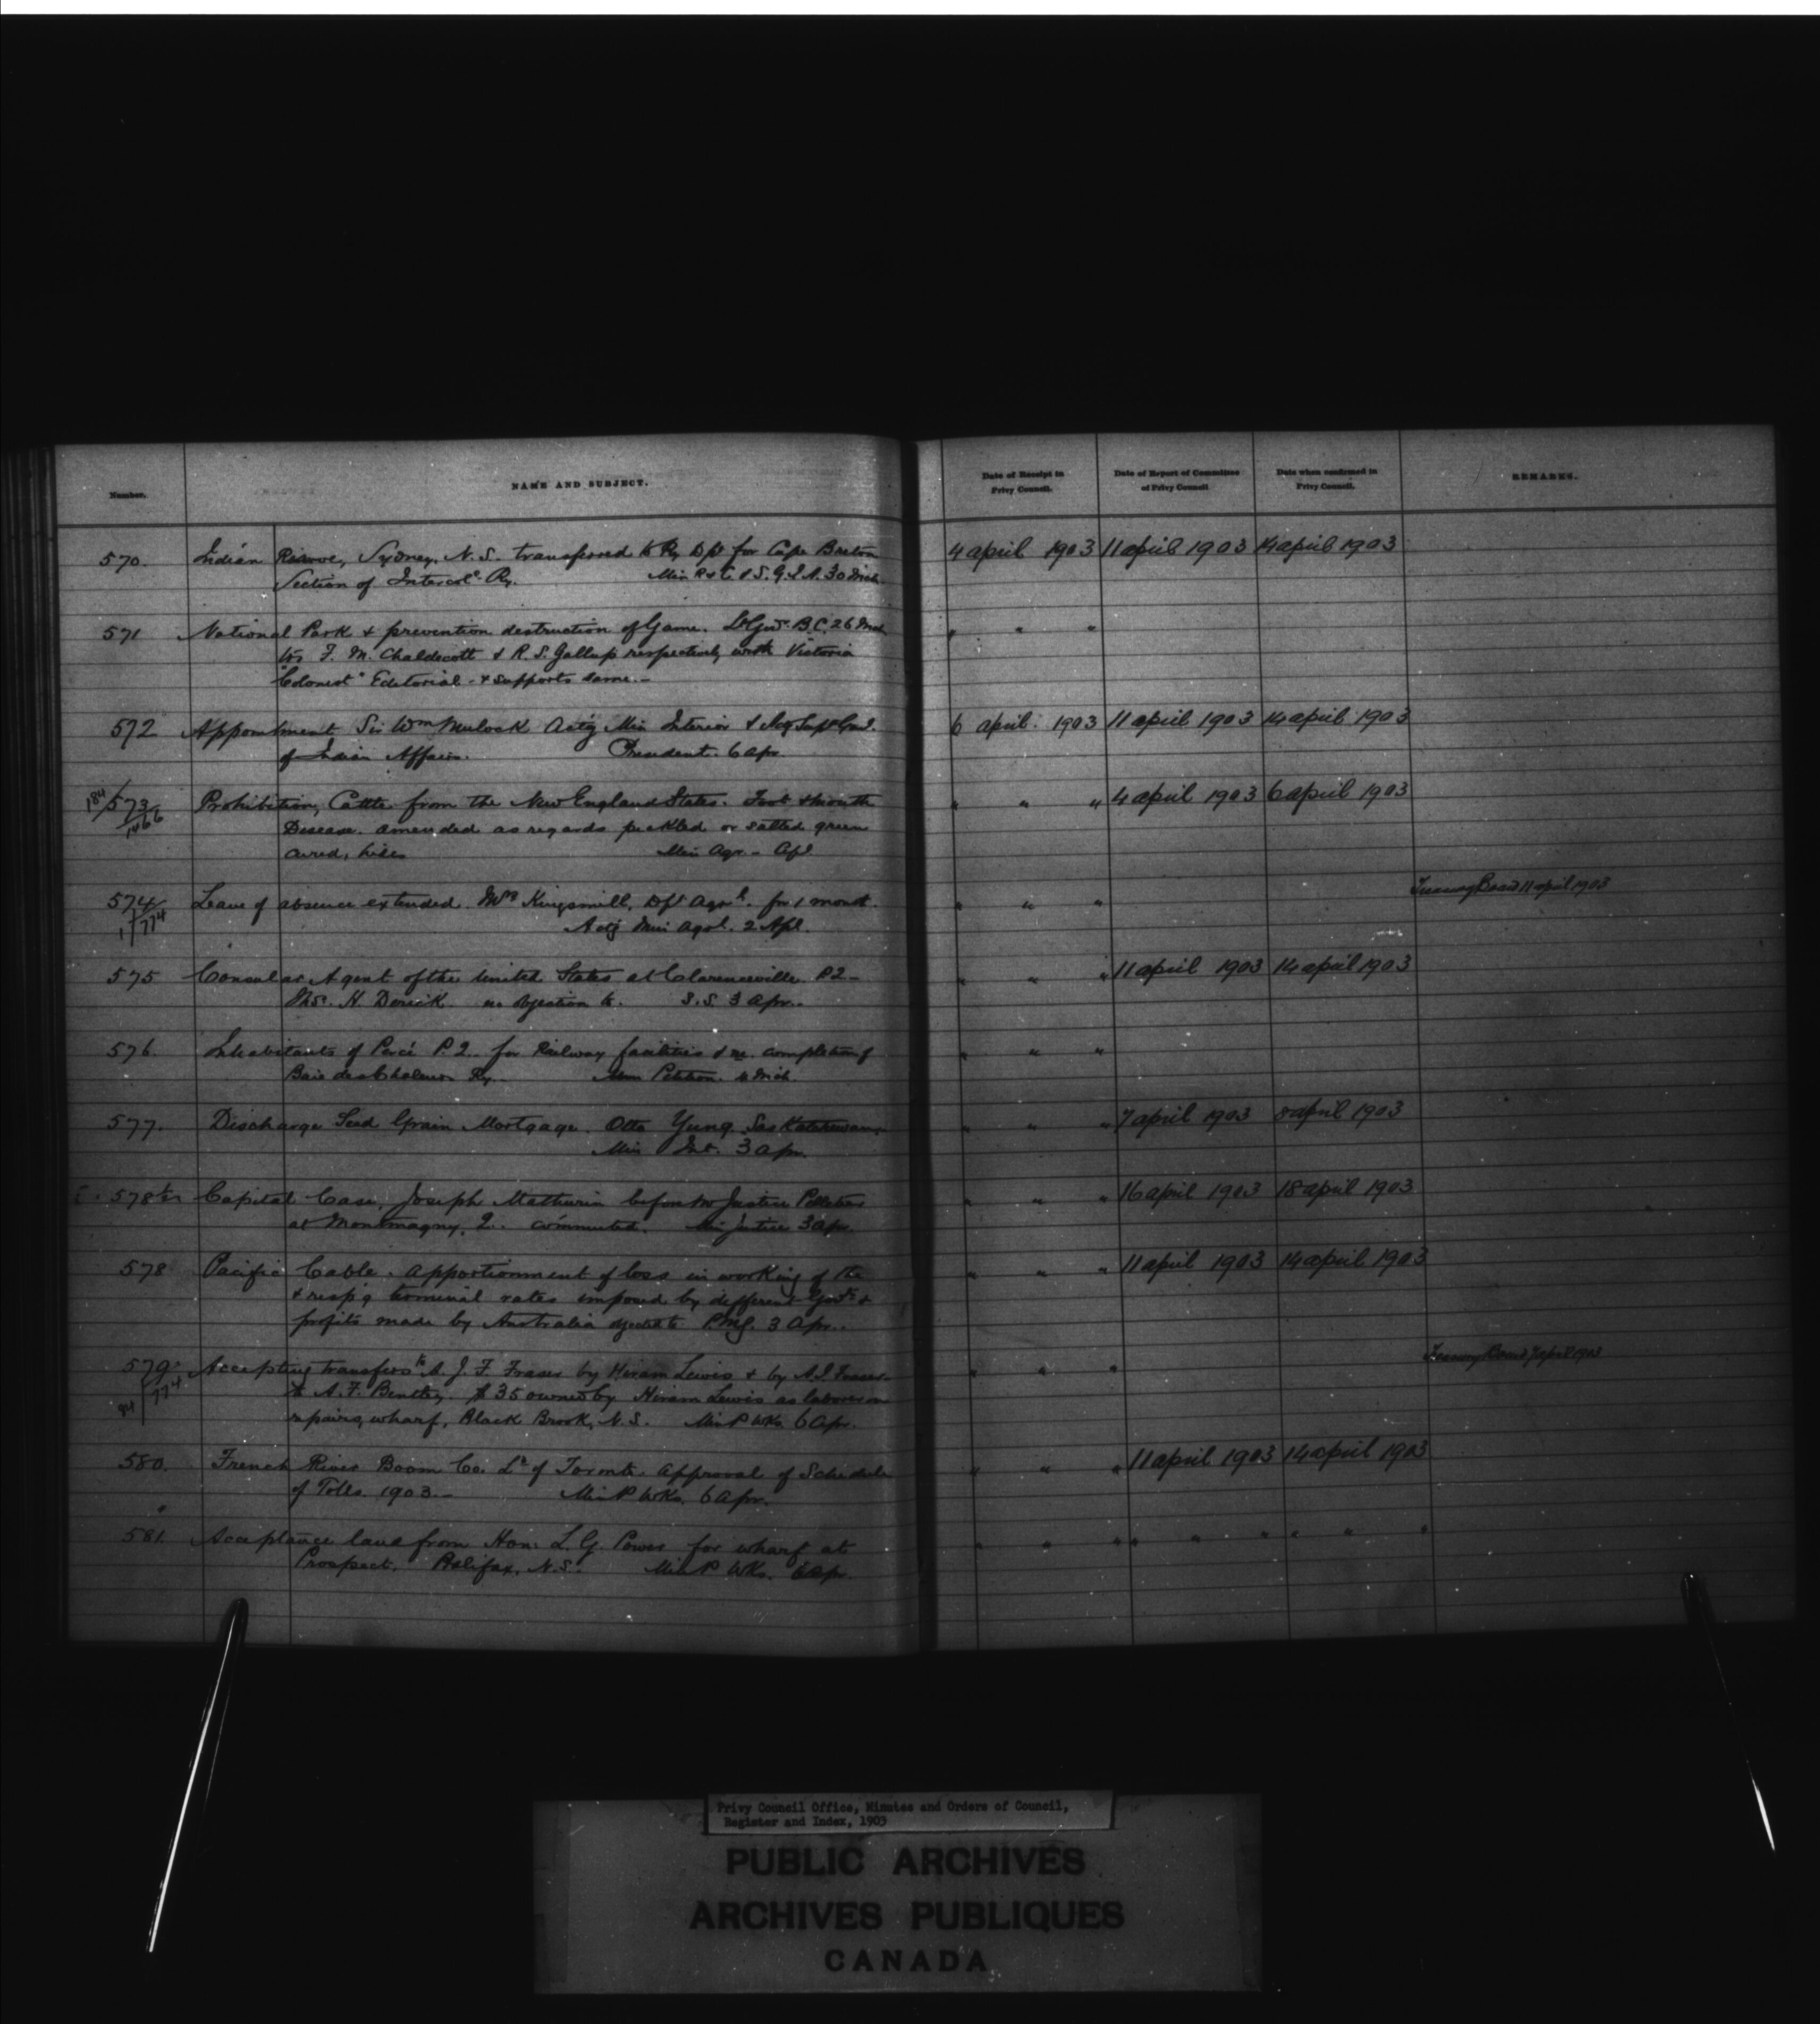 Number.
NAME AND SUBJECT.
Date of Receipt in Privy Council.
Date of Report of Committee of Privy Council
Date when confirmed in Privy Council.
REMARKS.
570. Indian Reserve, Sydney, N.S. transferred to Ry Dpt for Cape Breton 4 april 1903 11 april 1903 14 april 1903
Section of Intercole Ry. Min R & C & S.G.I.A. 30 Mch.
571 National Park & prevention destruction of Game. Lt Govr B.C. 26 Mch " " "
F. M. Chaldecott & R. S. Gallup respectively with Victoria
"Colonist" Editorial - & supports same.-
572 Appointment Sir Wm Mulock Actg Min Interior & Actg Supt Genl. 6 april 1903 11 april 1903 14 april 1903
of Indian Affairs. President 6 apr
184/573/1466 Prohibition, Cattle from the New England States. Foot & mouth " " " 4 april 1903 6 april 1903
Disease. amended as regards pickled or salted green
cured, hides Min Agr. - Apl
574 Leave of absence extended. Kingsmill, Dpt Agrl. for 1 month. " " " Treasury Board 11 april 1903
1/774 Actg Min Agrl. 2 Apl.
575 Consular Agent of the United States at Clarenceville P2- " " " 11 april 1903 14 april 1903
H. Derick no objection to. S.S. 3 apr.-
576. Inhabitants of Percé P.2. for Railway facilities & re. completion of " " "
Baie des Chaleurs Ry. Mem Petition. 4 Mch.
577. Discharge Seed Grain Mortgage. Otto Yung. Saskatchewan. " " " 7 april 1903 8 april 1903
Min Int. 3 apr.
578 Capital Case, Joseph Mathurin before Mr Justice Pelletier " " " 16 april 1903 18 april 1903
at Montmagny, 2. commuted. Min Justice 3 apr.
578 Pacific Cable. apportionment of loss in working of the " " " 11 april 1903 14 april 1903
& respg terminal rates imposed by different Govts &
profits made by Australia objected to P.M.G. 3 Apr..
579 Accepting transfers to A. J. F. Fraser by Hiram Lewis & by A.J. Fraser " " " Treasury Board 7 april 1903
84/774 to A. F. Bentley, $35 owned by Hiram Lewis as laborer on
repairing wharf, Black Brook, N.S. Min P Wks 6 Apr.
580. French River Boom Co. Ld of Toronto. Approval of Schedule " " " 11 april 1903 14 april 1903
of Tolls. 1903.- Min P Wks. 6 Apr.
581. Acceptance land from Hon: L. G. Power for wharf at " " " " " " " " "
Prospect. Halifax. N.S. Min P Wks. 6 apr.
Privy Council Office, Minutes and Orders of Council,
Register and Index, 1903
PUBLIC ARCHIVES
ARCHIVES PUBLIQUES
CANADA